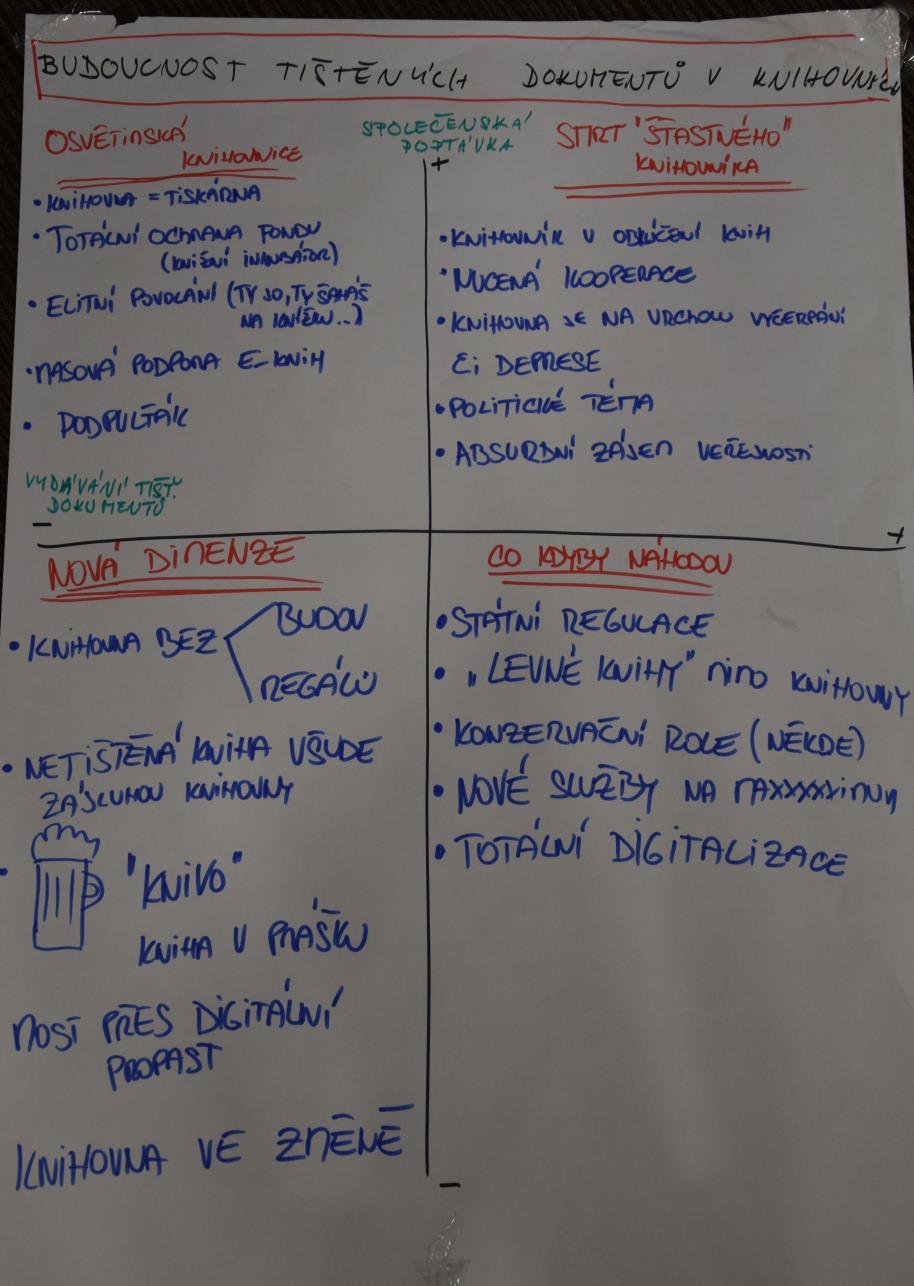 BUDOUCNOST TIŠTĚNÝCH DOKUMENTŮ V KNIHOVNÁCH
SPOLEČENSKÁ
POPTÁVKA
+
OSVĚTIMSKÁ
KNIHOVNICE
• KNIHOVNA = TISKÁRNA
• TOTÁLNÍ OCHRANA FONDU
(KNIŽNÍ INKUBÁTOR)
• ELITNÍ POVOLÁNÍ (TY JO, TY ŠAHÁŠ
NA KNÍŽKU...)
• MASOVÁ PODPORA E-KNIH
• PODPULŤÁK
VYDÁVÁNÍ TIŠT.
DOKUMENTŮ
−
SMRT "ŠŤASTNÉHO"
KNIHOVNÍKA
• KNIHOVNÍK V OBKLÍČENÍ KNIH
• NUCENÁ KOOPERACE
• KNIHOVNA JE NA VRCHOLU VYČERPÁNÍ
ČI DEPRESE
• POLITICKÉ TÉMA
• ABSURDNÍ ZÁJEM VEŘEJNOSTI
+
NOVÁ DIMENZE
• KNIHOVNA BEZ BUDOV
REGÁLŮ
• NETIŠTĚNÁ KNIHA VŠUDE
ZÁSLUHOU KNIHOVNY
• "KNIVO"
KNIHA V PRÁŠKU
MOST PŘES DIGITÁLNÍ
PROPAST
KNIHOVNA VE ZMĚNĚ
CO KDYBY NÁHODOU
• STÁTNÍ REGULACE
• „LEVNÉ KNIHY" MIMO KNIHOVNY
• KONZERVAČNÍ ROLE (NĚKDE)
• NOVÉ SLUŽBY NA MAXXXXXIMUM
• TOTÁLNÍ DIGITALIZACE
−